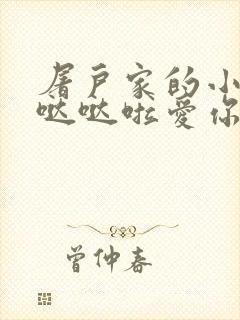 屠户家的小
哒哒啦爱你
曾仲春